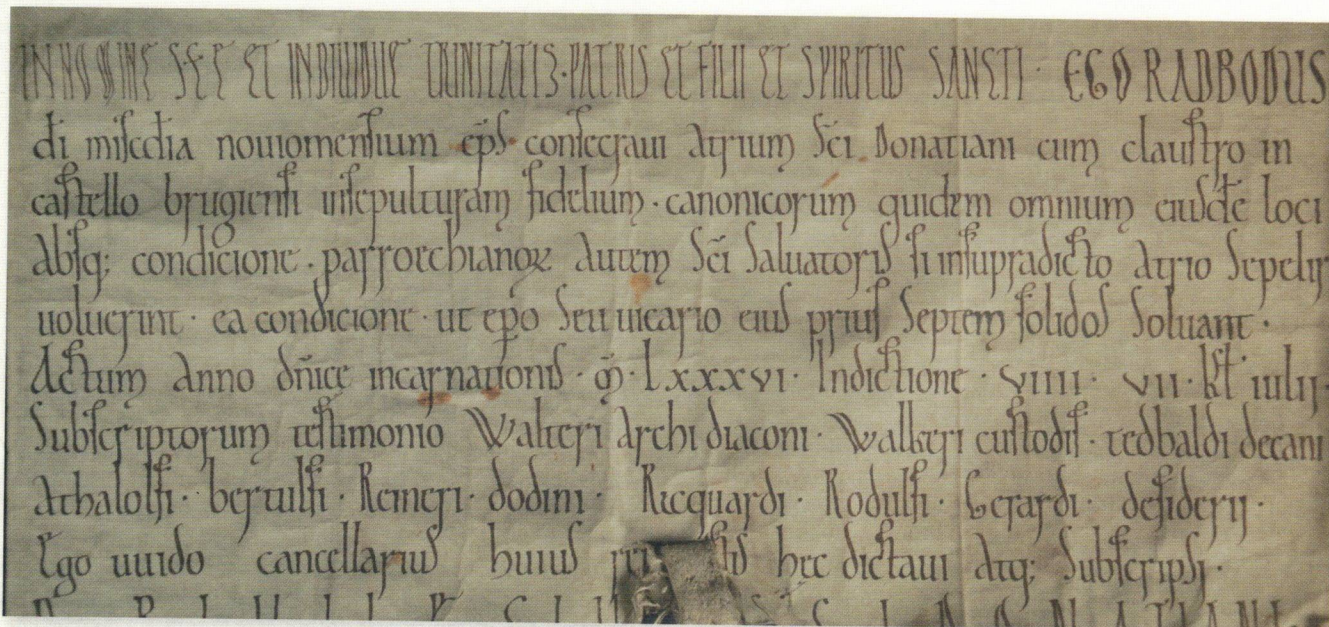 IN NOMINE SCE ET INDIUIDUE TRINITATIS·PATRIS ET FILII ET SPIRITUS SANCTI· EGO RADBODUS
di misedia nouiomensium eps· consecraui atrium Sci Donatiani cum claustro in
castello brugiensi insepulturam fidelium· canonicorum quidem omnium eiusdē loci
absq; condicione· parroechianoꝝ autem Sci Saluatoris si insupradicto atrio Sepelir
uoluerint· ea condicione· ut epo Seu uicario eius prius Septem solidos Soluant·
Actum anno dnice incarnationis· M̄· Lxxxvi· Indictione· viiii· vii· kł iulij·
Subscriptorum testimonio Walteri Archidiaconi· Walkeri custodis· tedbaldi decani
Athalolfi· bertulfi· Reineri· dodini· Ricquardi· Rodulfi· Gerardi· desiderij·
Ego uuido cancellarius huius hec dictaui atq; Subscripsi·